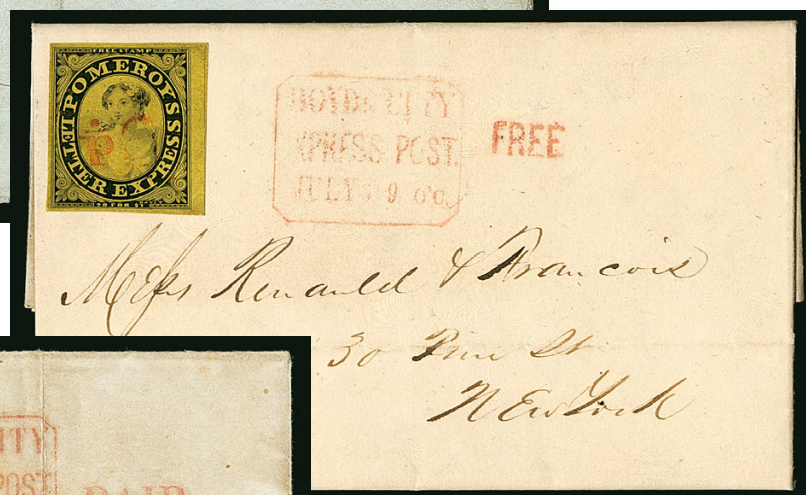 FREE STAMP
POMEROY'S
LETTER EXPRESS
20 FOR $1
BOYD'S CITY
XPRESS POST.
JULY 9 o'c.
FREE
Messs Renauld & Francois
30 Pine St
New York
ITY
POST
PAID